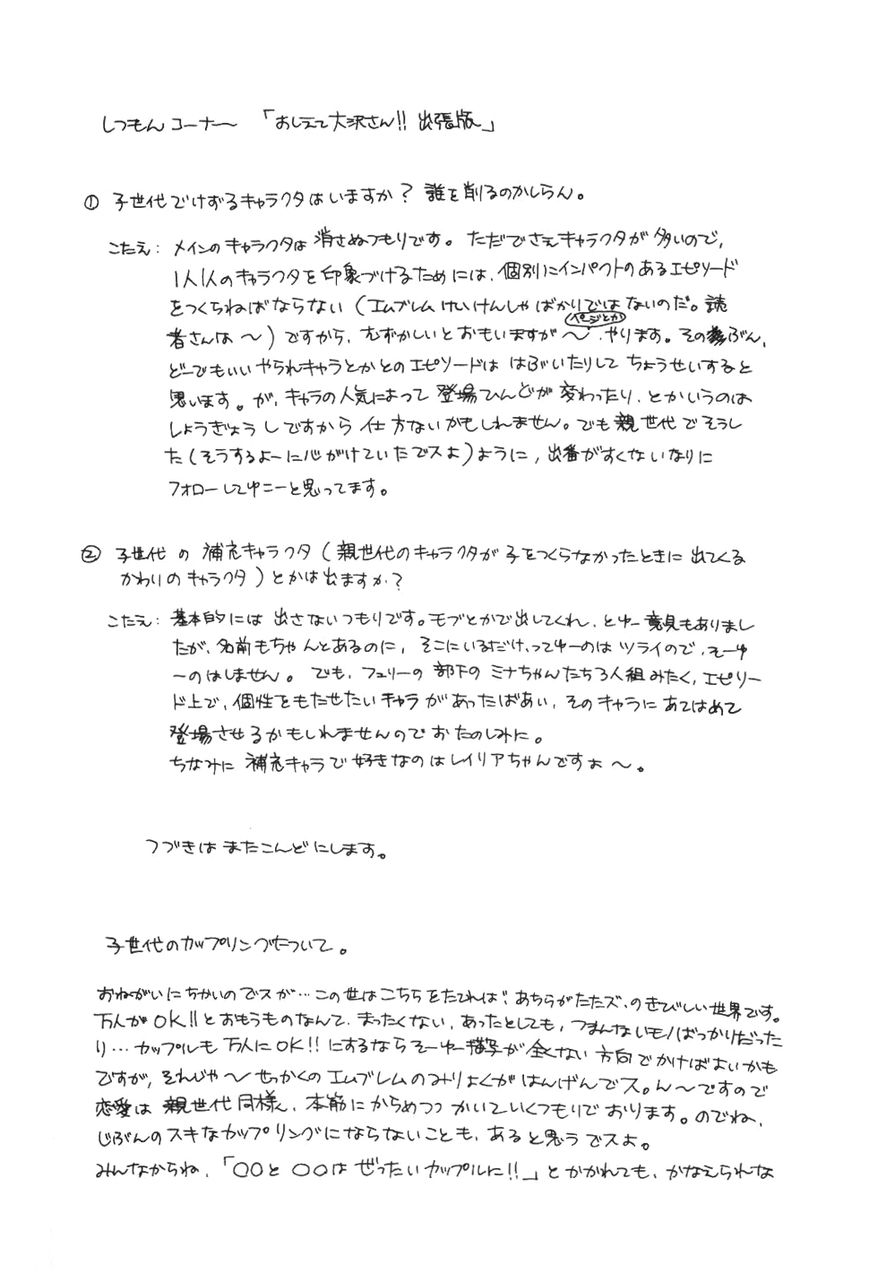 しつもんコーナー 「おしえて大沢さん!! 出張版」
① 子世代でけずるキャラクタはいますか？ 誰を削るのかしらん。
こたえ: メインのキャラクタは消さぬつもりです。ただでさえキャラクタが多いので,
1人1人のキャラクタを印象づけるためには、個別にインパクトのあるエピソード
をつくらねばならない（エムブレムけいけんしゃばかりではないのだ。読
者さんは〜）ですから、むずかしいとおもいますが〜、やります。そのぶん,
ページとか
どーでもいいやられキャラとかとのエピソードは はぶいたりして ちょうせいすると
思います。が, キャラの人気によって 登場ひんどが 変わったり、とかいうのは
しょうぎょうしですから 仕方ないかもしれません。でも 親世代でそうし
た（そうするよーに心がけていたでスよ）ように, 出番がすくないなりに
フォローしてゆこーと思ってます。
② 子世代の 補充キャラクタ（親世代のキャラクタが子をつくらなかったときに出てくる
かわりのキャラクタ）とかは出ますか？
こたえ: 基本的には 出さないつもりです。モブとかで出してくれ、とゆー意見もありまし
たが、名前もちゃんとあるのに, そこにいるだけ、ってゆーのは ツライので、そーゆ
ーのはしません。でも、フュリーの 部下の ミナちゃんたち3人組みたく, エピソー
ド上で、個性をもたせたいキャラがあったばあい, そのキャラに あてはめて
登場させるかもしれませんので おたのしみに。
ちなみに 補充キャラで好きなのはレイリアちゃんですよ〜。
つづきは またこんどにします。
子世代のカップリングについて。
おねがいにちかいのでスが…この世はこちらをたてれば、あちらがたたズ、のきびしい世界です。
万人がOK!!とおもうものなんて、まったくない, あったとしても, つまんないモノばっかりだった
り…カップルも万人にOK!!にするならそーゆー描写が全くない方向でかけばよいかも
ですが, それじゃ〜せっかくのエムブレムのみりょくがはんげんでス。ん〜ですので
恋愛は 親世代同様, 本筋にからめつつ かいていくつもりでおります。のでね,
じぶんのスキなカップリングにならないことも、あると思うでスよ。
みんなからね、「○○と○○はぜったいカップルに!!」とかかれても、かなえられな